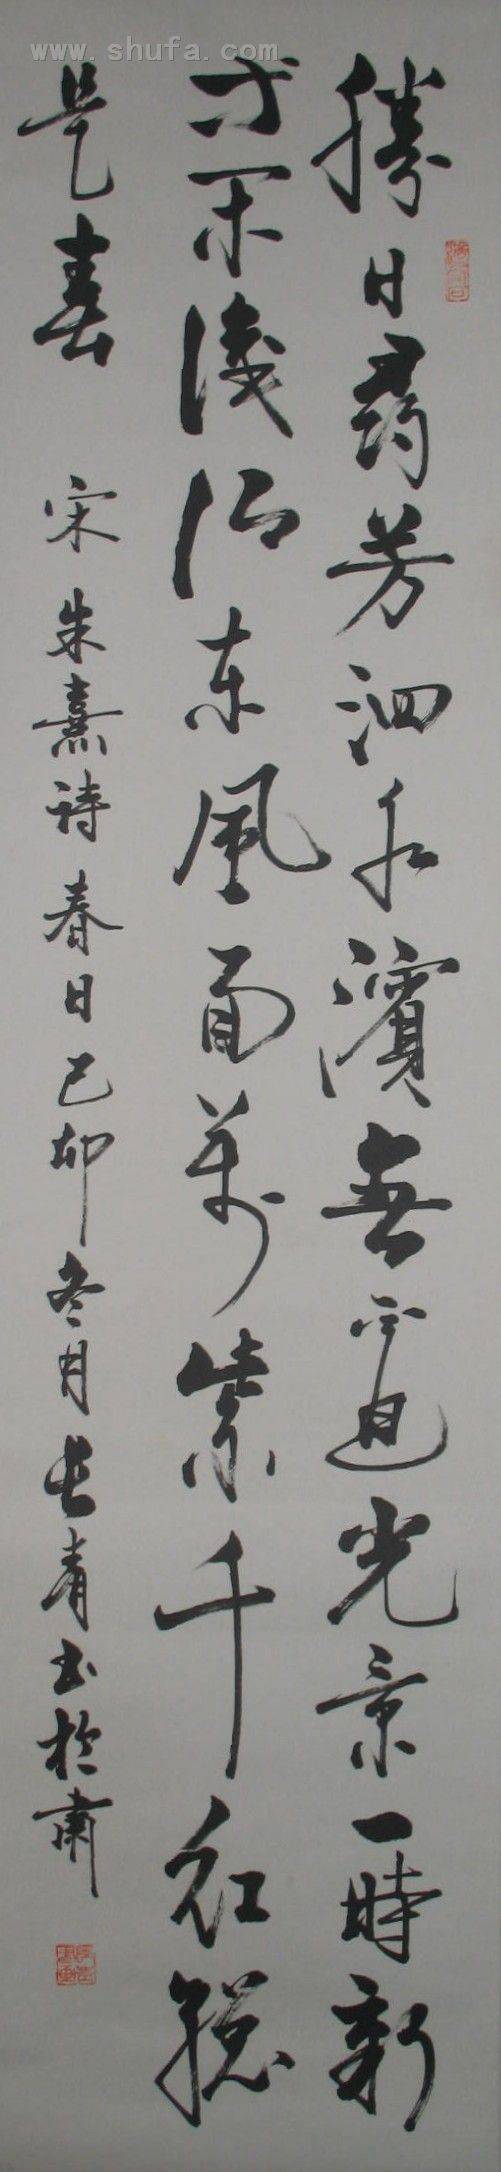 www.shufa.com
勝日尋芳泗水濱無邊光景一時新
等閑識得東風面萬紫千紅總
是春 宋朱熹詩春日己卯冬月長青書於肅